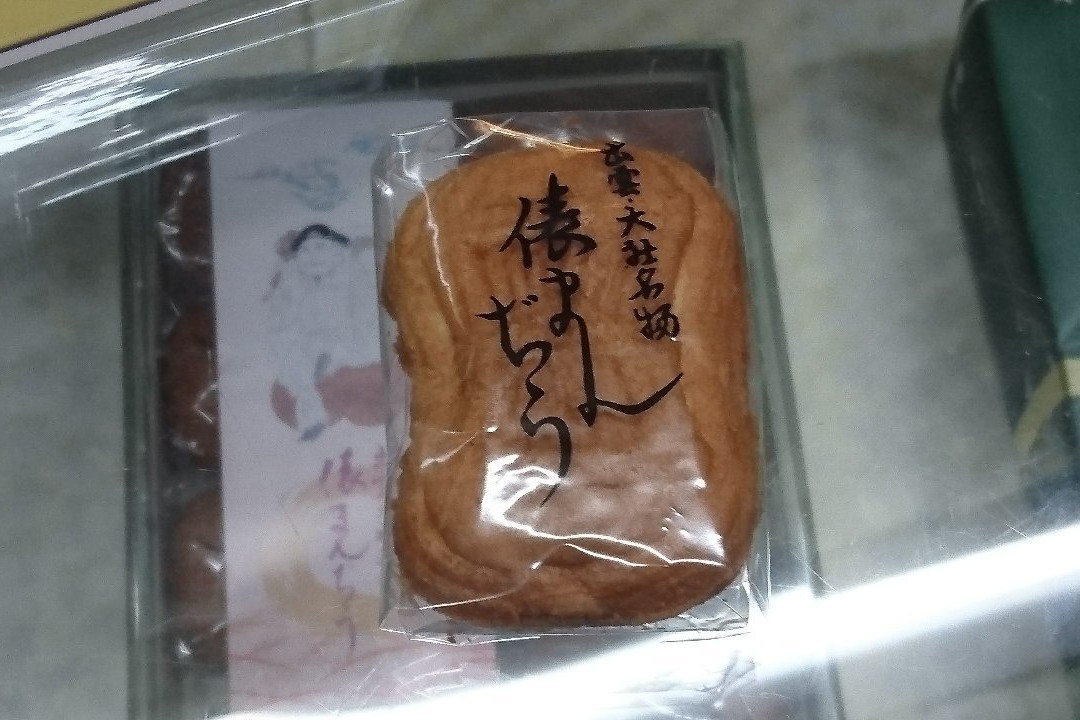 出雲・大社名物
俵まん
ぢう
俵まんぢう